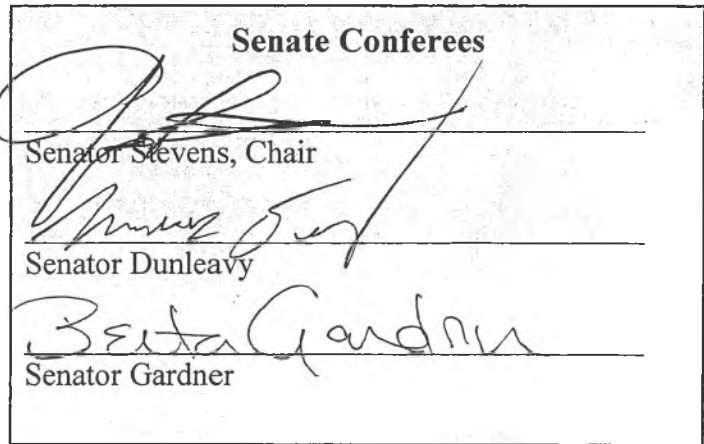 Senate Conferees
Senator Stevens, Chair
Senator Dunleavy
Berta Gardner
Senator Gardner